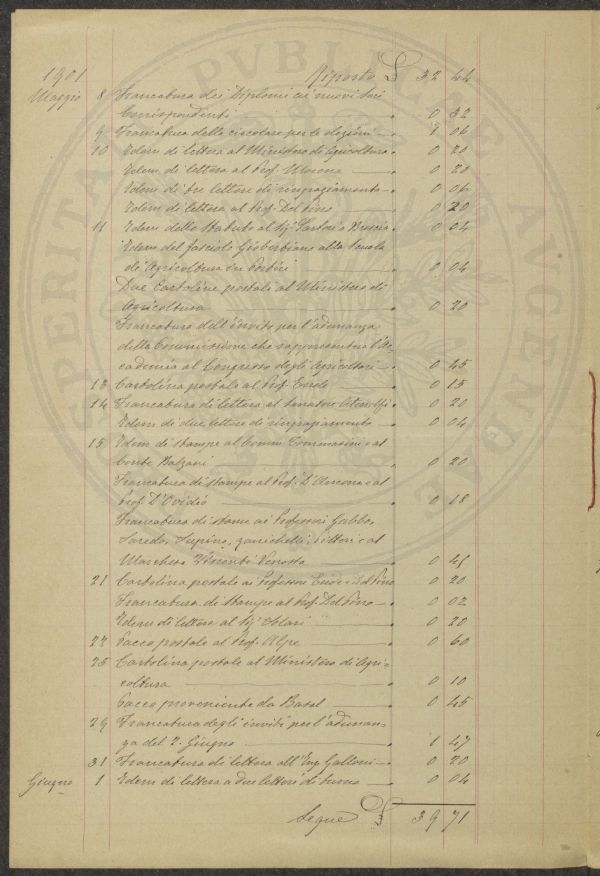 1901 Riporto £ 32 44
Maggio 8 Francatura dei Diplomi ai nuovi Soci
Corrispondenti 0 32
9 Francatura delle circolare per le elezioni 1 06
10 Idem di lettera al Ministero di Agricoltura 0 20
Idem di lettera al Prof. 0 20
Idem di tre lettere di ringraziamento 0 06
Idem di lettera al Prof. Del Pino 0 20
11 Idem dello Statuto al Sig. Sartori e Brescia 0 04
Idem del fascicolo Giobertiano alla Scuola
di Agricoltura in Portici 0 04
Due Cartoline postali al Ministero di
Agricoltura 0 20
Francatura dell'invito per l'adunanza
della Commissione che rappresenterà l'Ac-
cademia al Congresso degli Agricoltori 0 45
13 Cartolina postale al Prof. 0 15
14 Francatura di lettera al Senatore 0 20
Idem di due lettere di ringraziamento 0 04
15 Idem di stampe al Comm. Tommasini e al
Conte Balzani 0 20
Francatura di stampe al Prof. D'Ancona e al
Prof. D'Ovidio 0 18
Francatura di stampe ai Professori Gabba,
Saredo, Supino, Zanichelli, e al
Marchese Visconti Venosta 0 45
21 Cartolina postale ai Professori e Del Pino 0 20
Francatura di stampe al Prof. Del Pino 0 02
Idem di lettera al Sig. Solari 0 20
22 Pacco postale al Prof. Alpe 0 60
25 Cartolina postale al Ministero di Agri-
coltura 0 10
Pacco proveniente da Basel 0 45
29 Francatura degli inviti per l'adunan-
za del 2. Giugno 1 47
31 Francatura di lettera all'Ing. Galloni 0 20
Giugno 1 Idem di lettera a due lettori di turno 0 04
Segue £ 39 71